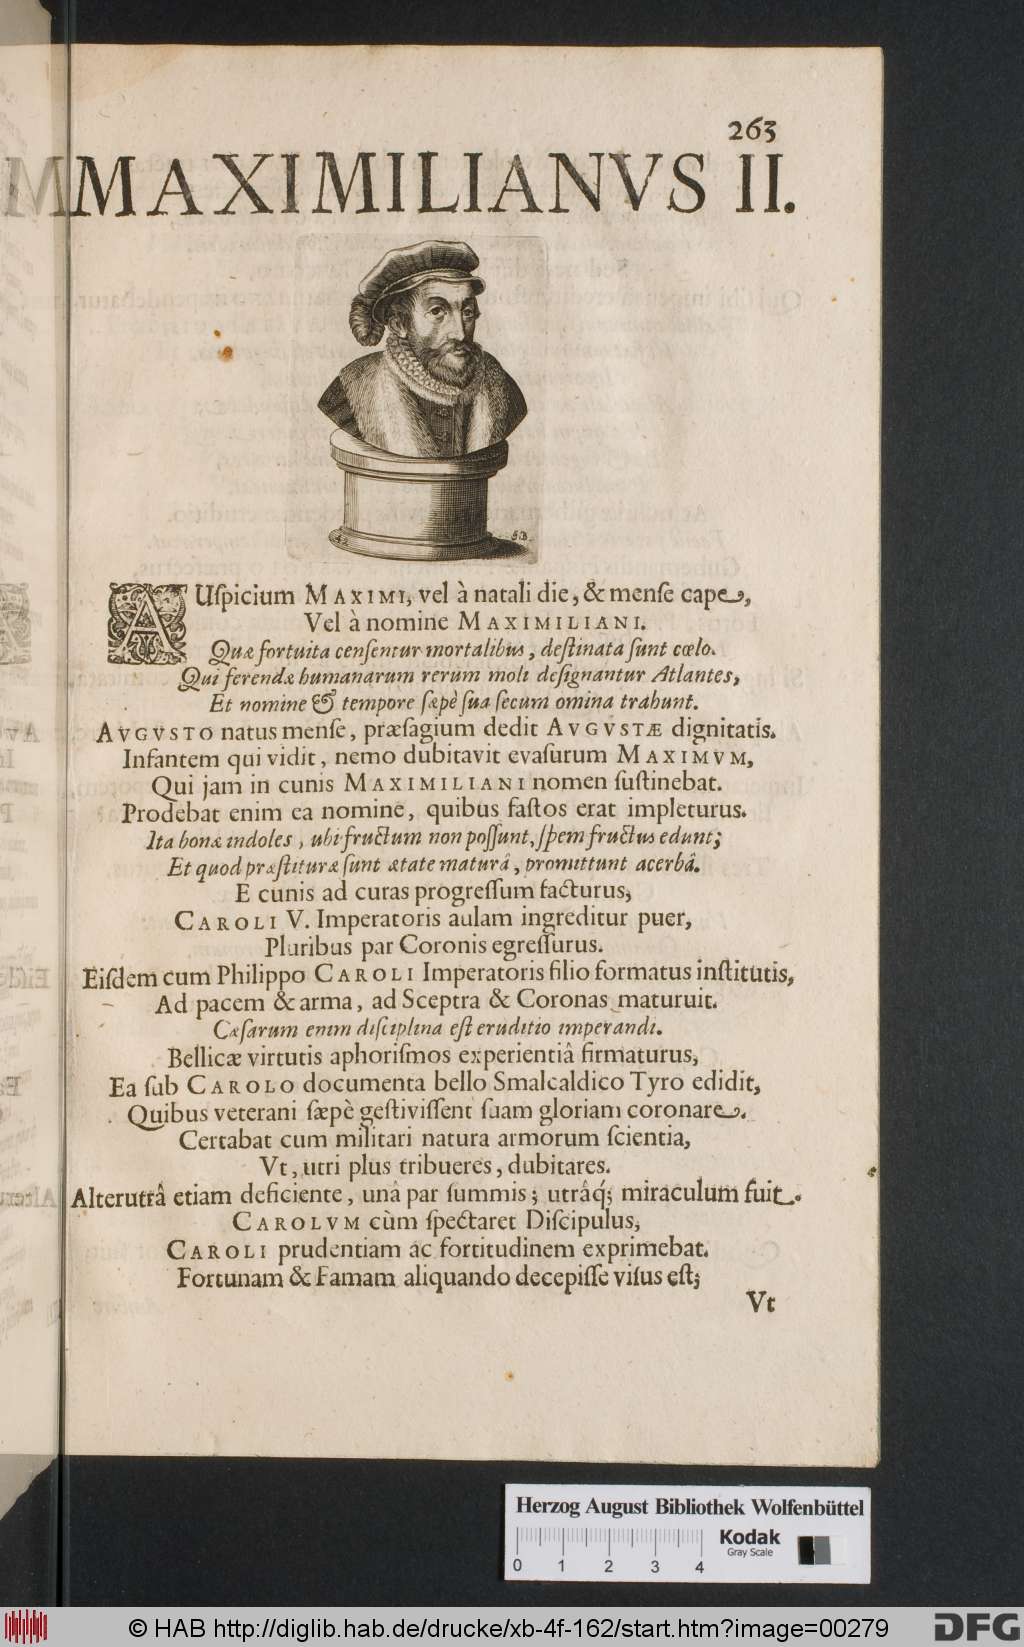 263
MAXIMILIANVS II.
42 53.
AUſpicium MAXIMI, vel à natali die, & menſe cape,
Vel à nomine MAXIMILIANI.
Quæ fortuita cenſentur mortalibus, deſtinata ſunt cœlo.
Qui ferendæ humanarum rerum moli deſignantur Atlantes,
Et nomine & tempore ſæpè ſua ſecum omina trahunt.
AVGVSTO natus menſe, præſagium dedit AVGVSTÆ dignitatis.
Infantem qui vidit, nemo dubitavit evaſurum MAXIMVM,
Qui jam in cunis MAXIMILIANI nomen ſuſtinebat.
Prodebat enim ea nomine, quibus faſtos erat impleturus.
Ita bonæ indoles, ubi fructum non poſſunt, ſpem fructus edunt;
Et quod præſtituræ ſunt ætate maturâ, promittunt acerbâ.
E cunis ad curas progreſſum facturus,
CAROLI V. Imperatoris aulam ingreditur puer,
Pluribus par Coronis egreſſurus.
Eiſdem cum Philippo CAROLI Imperatoris filio formatus inſtitutis,
Ad pacem & arma, ad Sceptra & Coronas maturuit.
Cæſarum enim diſciplina eſt eruditio imperandi.
Bellicæ virtutis aphoriſmos experientiâ firmaturus,
Ea ſub CAROLO documenta bello Smalcaldico Tyro edidit,
Quibus veterani ſæpè geſtiviſſent ſuam gloriam coronare.
Certabat cum militari natura armorum ſcientia,
Vt, utri plus tribueres, dubitares.
Alterutrâ etiam deficiente, unâ par ſummis; utrâq́; miraculum fuit.
CAROLVM cùm ſpectaret Diſcipulus,
CAROLI prudentiam ac fortitudinem exprimebat.
Fortunam & Famam aliquando decepiſſe viſus eſt;
Vt
Herzog August Bibliothek Wolfenbüttel
Kodak
Gray Scale
0 1 2 3 4
© HAB http://diglib.hab.de/drucke/xb-4f-162/start.htm?image=00279
DFG